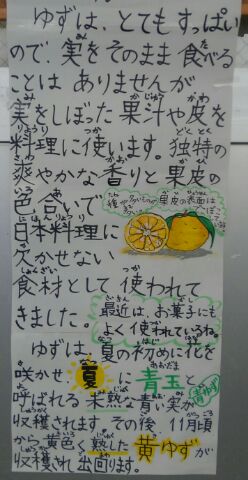 ゆずは、とてもすっぱい
ので、実をそのまま食べる
ことはありませんが
実をしぼった果汁や皮を
料理に使います。独特の
爽やかな香りと果皮の
色合いで
日本料理に
欠かせない
食材として使われて
きました。
果皮の表面は
最近は、お菓子にも
よく使われているね。
ゆずは、夏の初めに花を
咲かせ、夏に青玉と
青ゆず
呼ばれる未熟な青い実が
収穫されます。その後、11月頃
から黄色く熟した黄ゆずが
収穫され出回ります。